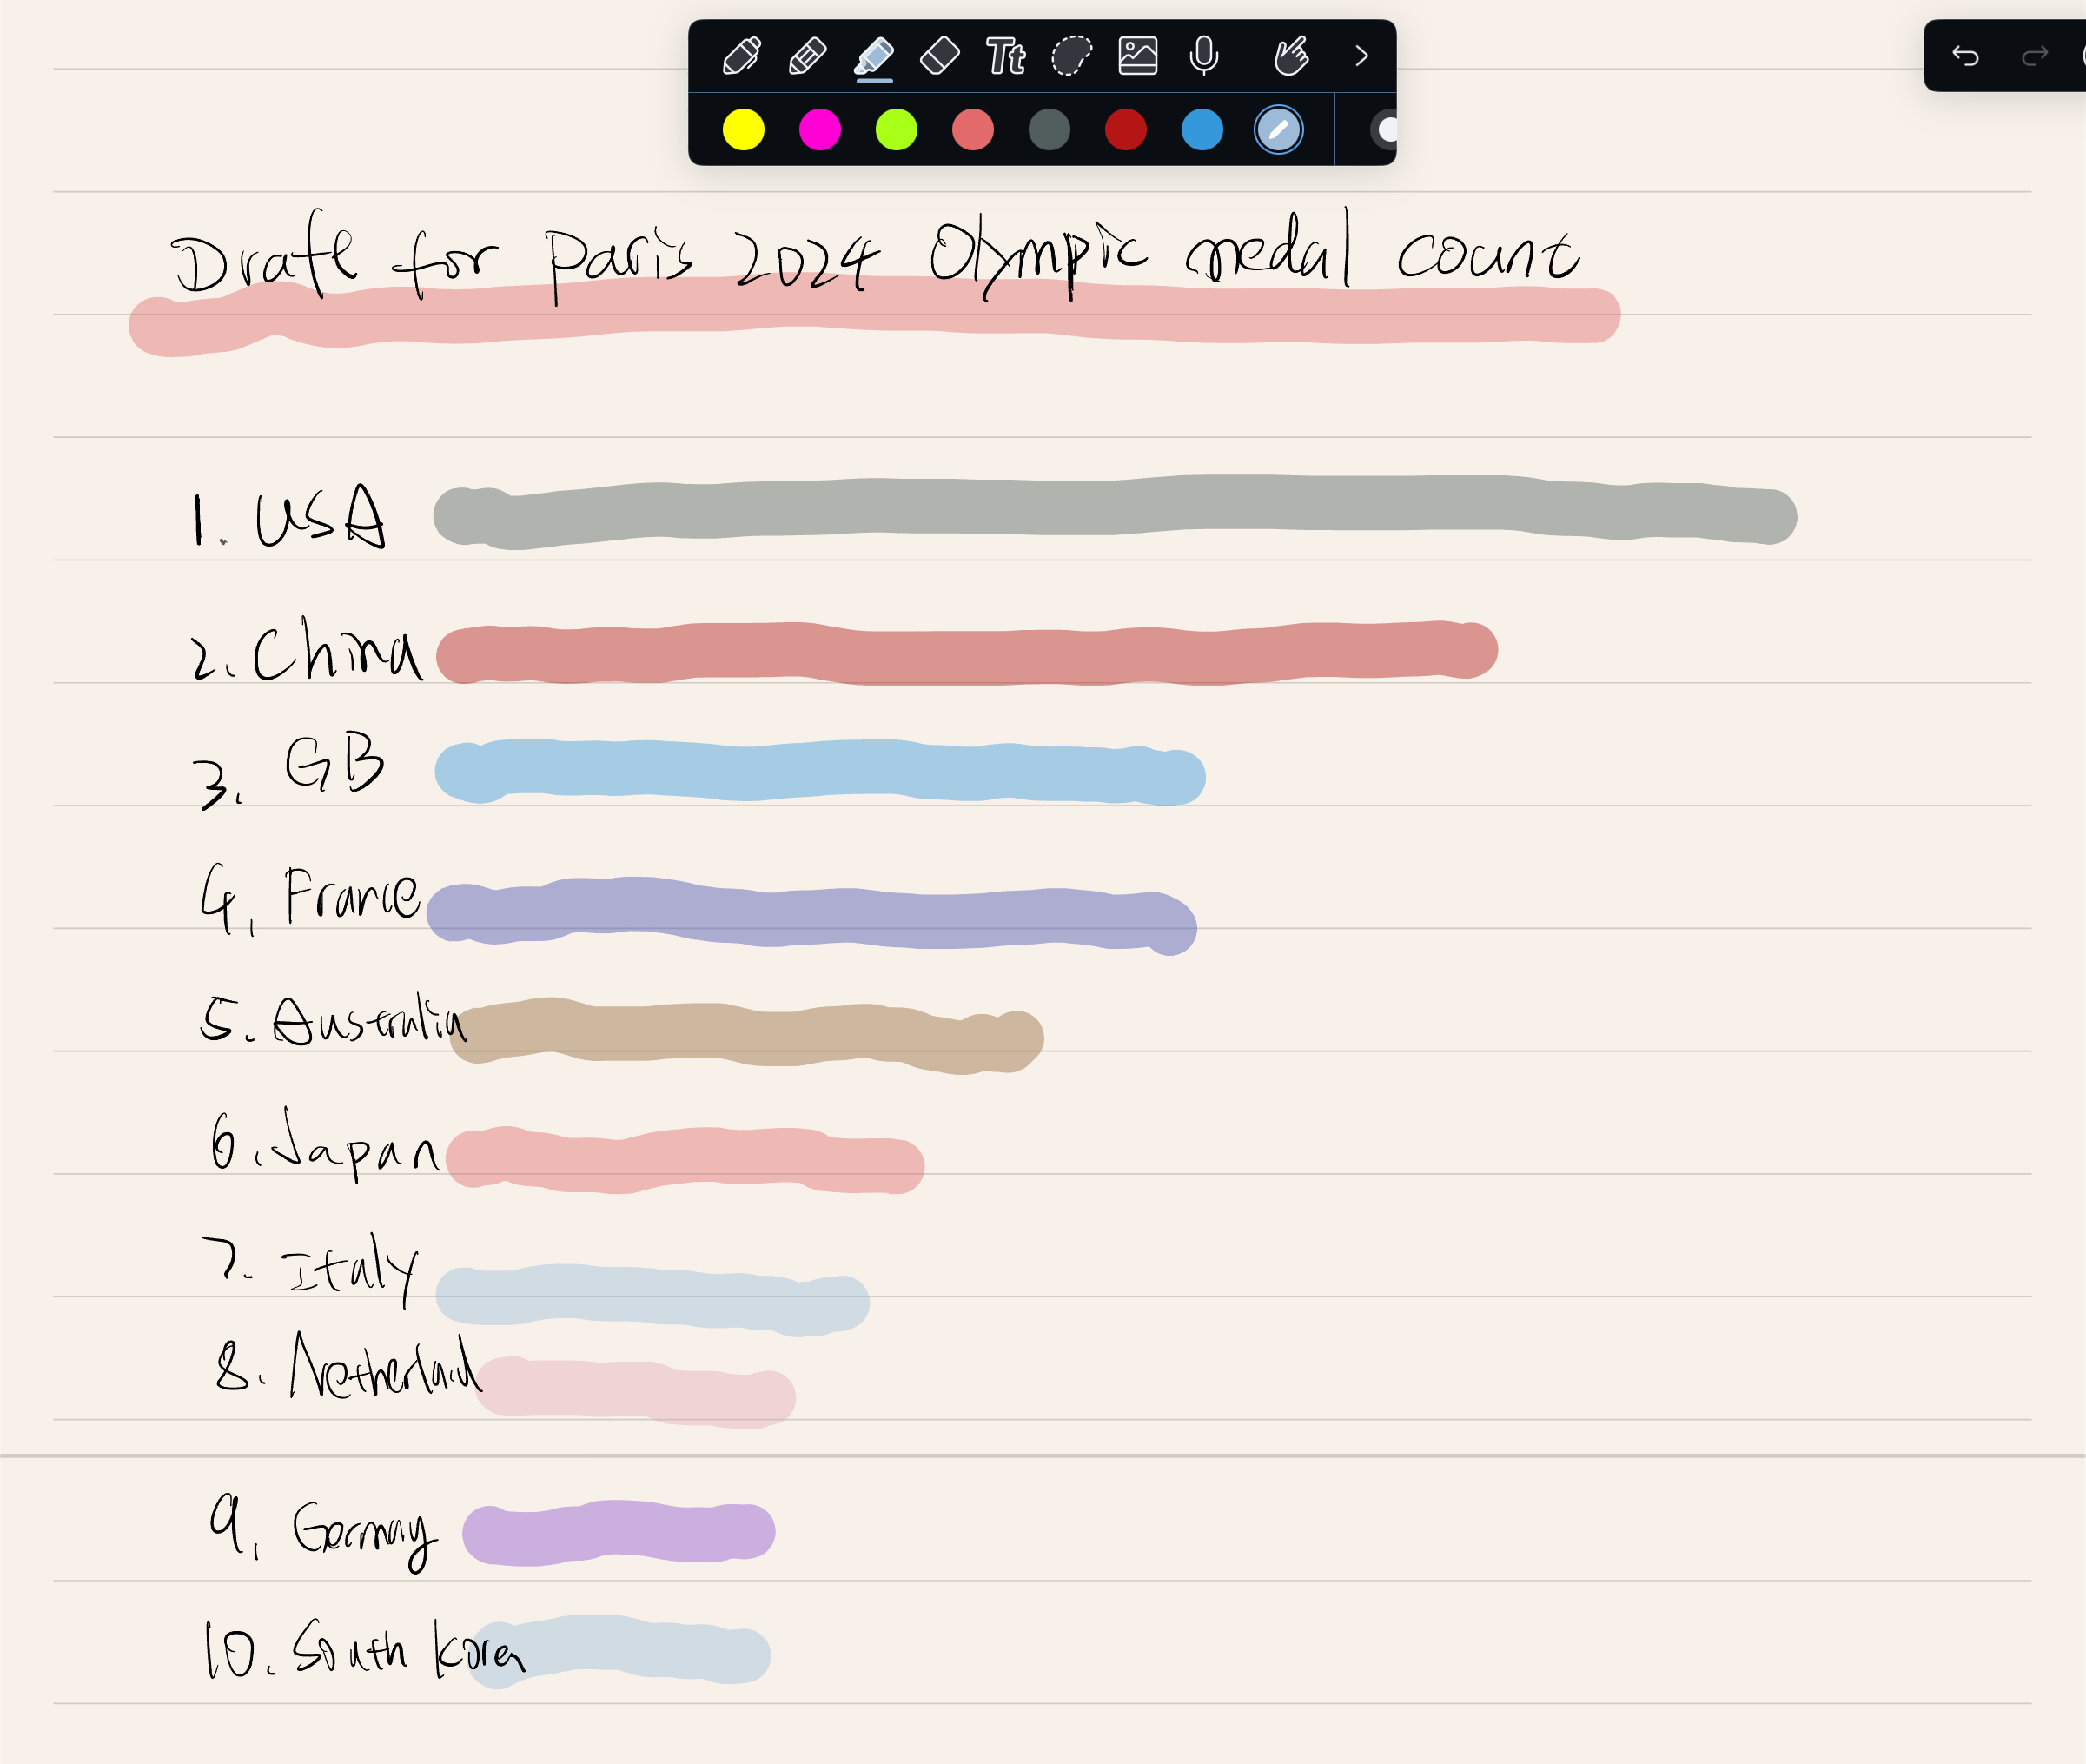 Tt
Draft for Paris 2024 Olympic medal count
1. USA
2. China
3. GB
4. France
5. Australia
6. Japan
7. Italy
8. Netherland
9. Germany
10. South Korea